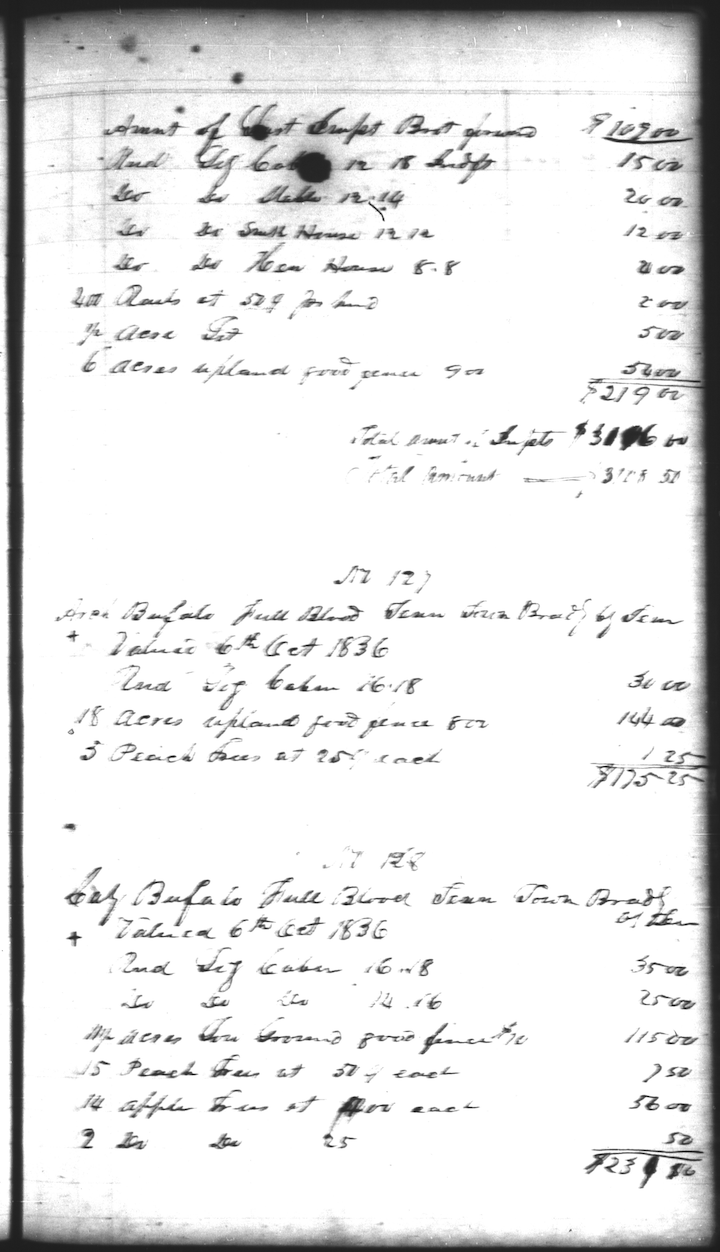 Amnt of first Impt Brot forward $109 00
Rnd Log Cabin 12 18 Indft 15 00
Do Do Stable 12.14 20 00
Do Do Smk House 12 12 12 00
Do Do Hen House 8.8 2 00
400 Rails at 50¢ per hund 2 00
1/2 acre Lot 5 00
6 acres upland good fence 9 00 54 00
$219 00
Total amnt of Impts 00
Total amount 50
No 127
Buffalo Full Blood Tenn Town Brady Cy Tenn
+ Valued 6th Oct 1836
Rnd Log Caben 16.18 30 00
18 acres upland good fence 800 144 00
5 Peach Trees at 25¢ each 1 25
$175 25
No 128
Caty Bufalo Full Blood Tenn Town Brady
Cy Tenn
+ Valued 6th Oct 1836
Rnd Log Caben 16.18 35 00
Do Do Do 14.16 25 00
acres Low Ground good fence $10 115 00
15 Peach Trees at 50¢ each 7 50
14 apple Trees at 400 each 56 00
2 Do Do 25 50